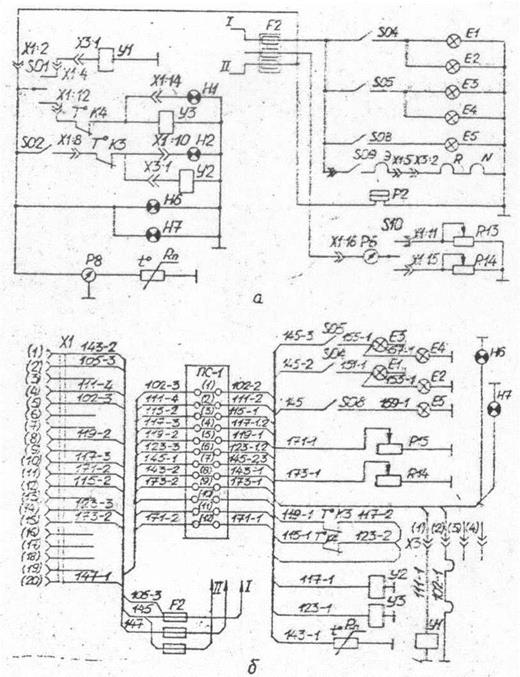 X1:2
X3:1
У1
SО1
X1:4
X1:12
T° K4
X1:14
H1
У3
SО2
X1:8
T° K3
X1:10
H2
X3:1
У2
H6
H7
P8
t°
Rп
I
F2
II
SО4
E1
E2
SО5
E3
E4
SО8
E5
SО9
Э
X1:5
X3:2
R
N
P2
S10
X1:16
P6
X1:11
R13
X1:15
R14
а
X1
(1) 143-2
(2) 105-3
(3)
(4) 111-4
(5) 102-3
(6)
(7)
(8) 119-2
(9)
(10) 117-3
(11) 171-2
(12) 115-2
(13)
(14) 123-3
(15) 173-2
(16)
(17)
(18)
(19)
(20) 147-1
ПС-1
102-3 (1) 102-2
111-4 (2) 111-2
115-2 (3) 115-1
117-3 (4) 117-1.2
119-2 (5) 119-1
123-3 (6) 123-1.2
145-1 (7) 145-2.3
143-2 (8) 143-1
173-2 (9) 173-1
(10)
(11)
171-2 (12) 171-1
105-3
145
147
F2
II
I
145-3
SО5
155-1
E3
157-1
E4
145-2
SО4
151-1
E1
153-1
E2
145
SО8
159-1
E5
H6
H7
171-1
P15
173-1
R14
119-1
T° K3
117-2
115-1
123-2
(1) (2) (5) (4)
X3
111-1
102-1
117-1
У2
123-1
У3
143-1
t°
Rп
У1
б